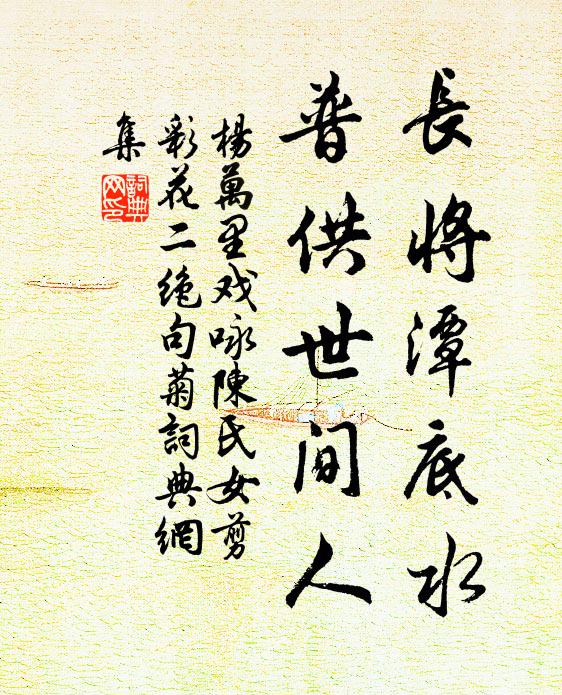 長将潭底水
普供世間人
楊萬里戏咏陳氏女剪
彩花二绝句菊詞典網
集
詞典网印